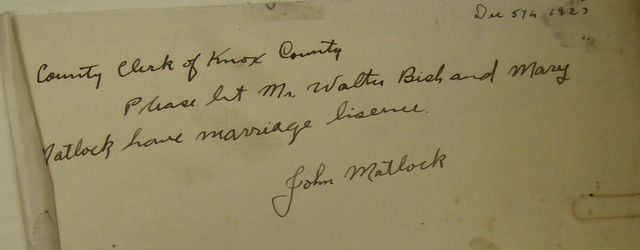 Dec 5th 1923
County Clerk of Knox County
Please let Mr. Walter Bish and Mary
Matlock have marriage lisence.
John Matlock